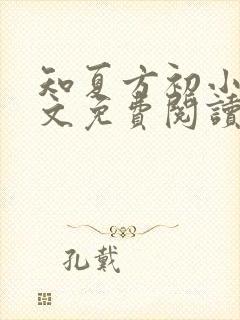 知夏方初小
文免費閱讀
孔戴